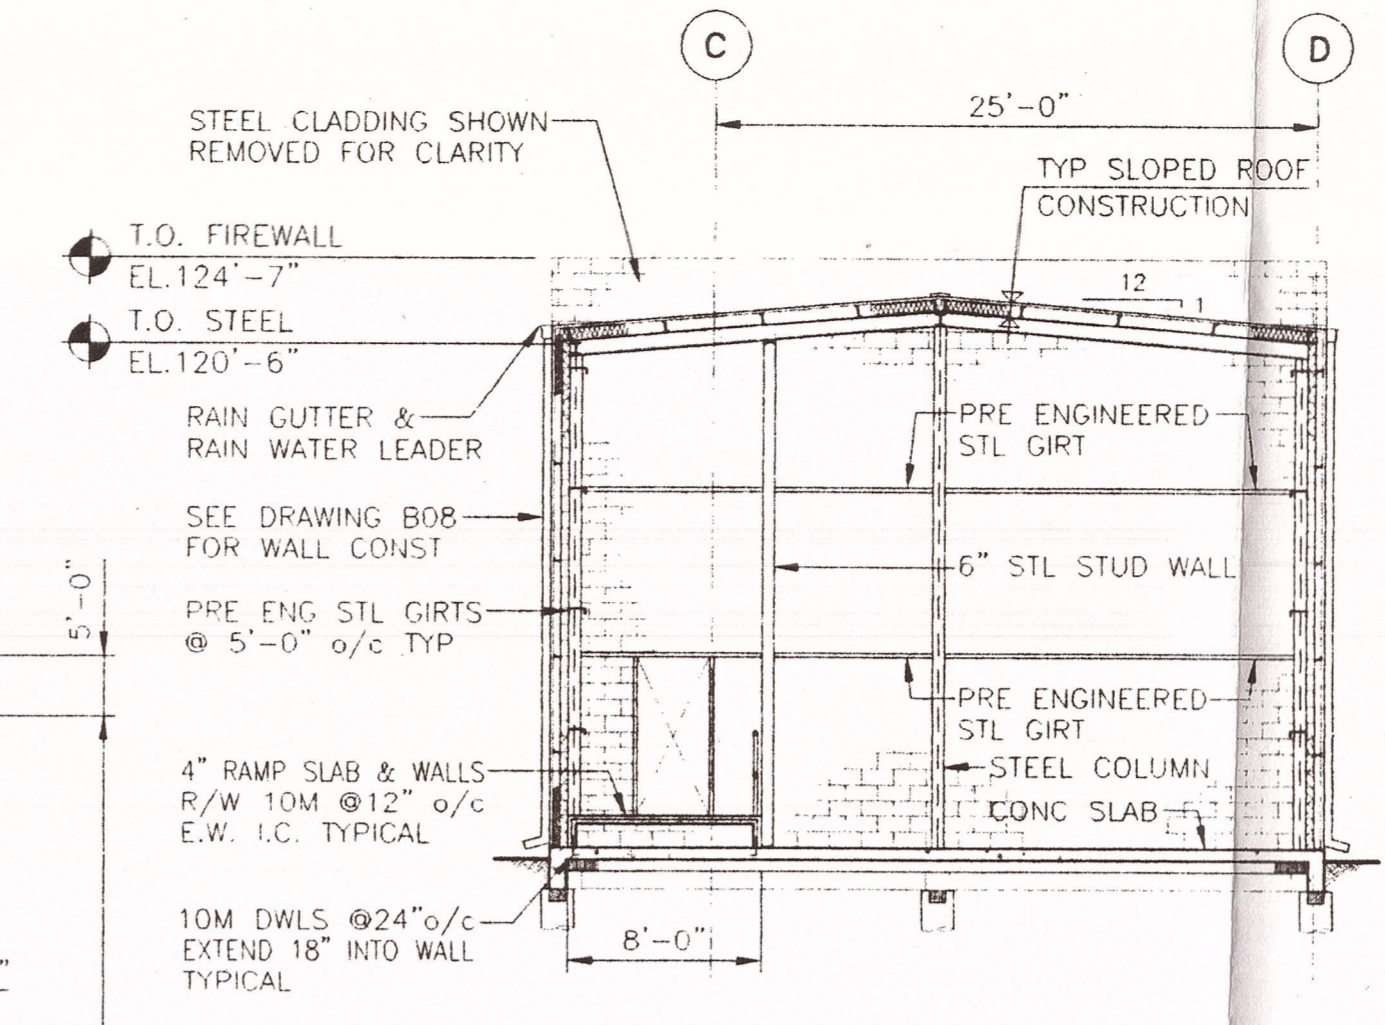 C
D
25'-0"
STEEL CLADDING SHOWN
REMOVED FOR CLARITY
TYP SLOPED ROOF
CONSTRUCTION
T.O. FIREWALL
EL.124'-7"
12
1
T.O. STEEL
EL.120'-6"
RAIN GUTTER &
RAIN WATER LEADER
PRE ENGINEERED
STL GIRT
SEE DRAWING B08
FOR WALL CONST
6" STL STUD WALL
5'-0"
PRE ENG STL GIRTS
@ 5'-0" o/c TYP
PRE ENGINEERED
STL GIRT
4" RAMP SLAB & WALLS
R/W 10M @12" o/c
E.W. I.C. TYPICAL
STEEL COLUMN
CONC SLAB
10M DWLS @24"o/c
EXTEND 18" INTO WALL
TYPICAL
8'-0"